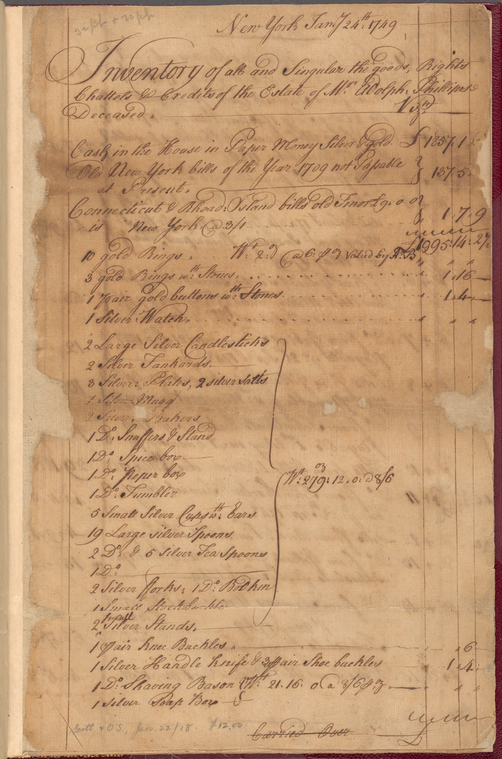 New York Janry 24th 1749
Inventory of all and Singular the goods, Rights
Chattels & Credits of the Estate of Mr Adolph Philipse
Deceased. Vizt
Cash in the House in Paper Money Silver & Gold £ 1857.1
Old New York bills of the Year 1709 not Passable
at Present. 137.5
Connecticut & Rhoad Island bills old Tenor
is New York 1.7.9
£1995.14
10 gold Rings. Wt
3 gold Rings wth Stones. 1.16
1 Pair gold buttons wth Stones. 1.4
1 Silver Watch.
2 Large Silver Candlesticks
2 Silver Tankards.
3 Silver Plates, 2 silver salts
1 Silver Mugg
Silver Beakers
1 Do Snuffers & Stand
1 Do Spice box
1 Do Peper box
1 Do Tumbler
Wt 279.12.0 @ 8/6
5 Small Silver Cups wth Ears
19 Large Silver Spoons
2 Do & 5 Silver Tea Spoons
1 Do
2 Silver fforks, 1 Do Bodkin
1 Small
2 Small Silver Stands.
1 Pair knee Buckles. 6
1 Silver Handle knife & Pair Shoe buckles 1.4
1 Do Shaving Bason Wt 21.16.0 @
1 Silver Soap Box
Carried Over
Jan. 22/18 $12.00